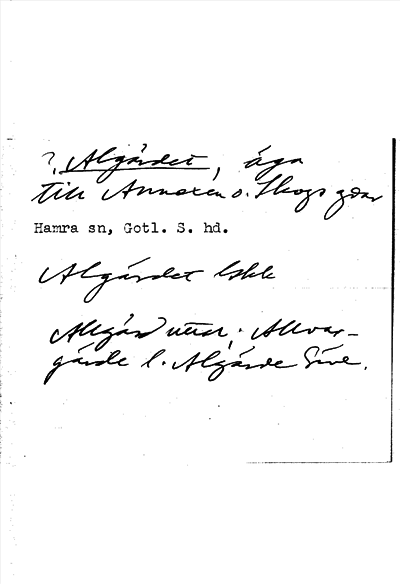 ? Algårdet, äga
till Annexen o. Skogs gdar
Hamra sn, Gotl. S. hd.
Algårdet Lskk
Allgård uttal. Allvar-
gärde l. Algärde Sive.